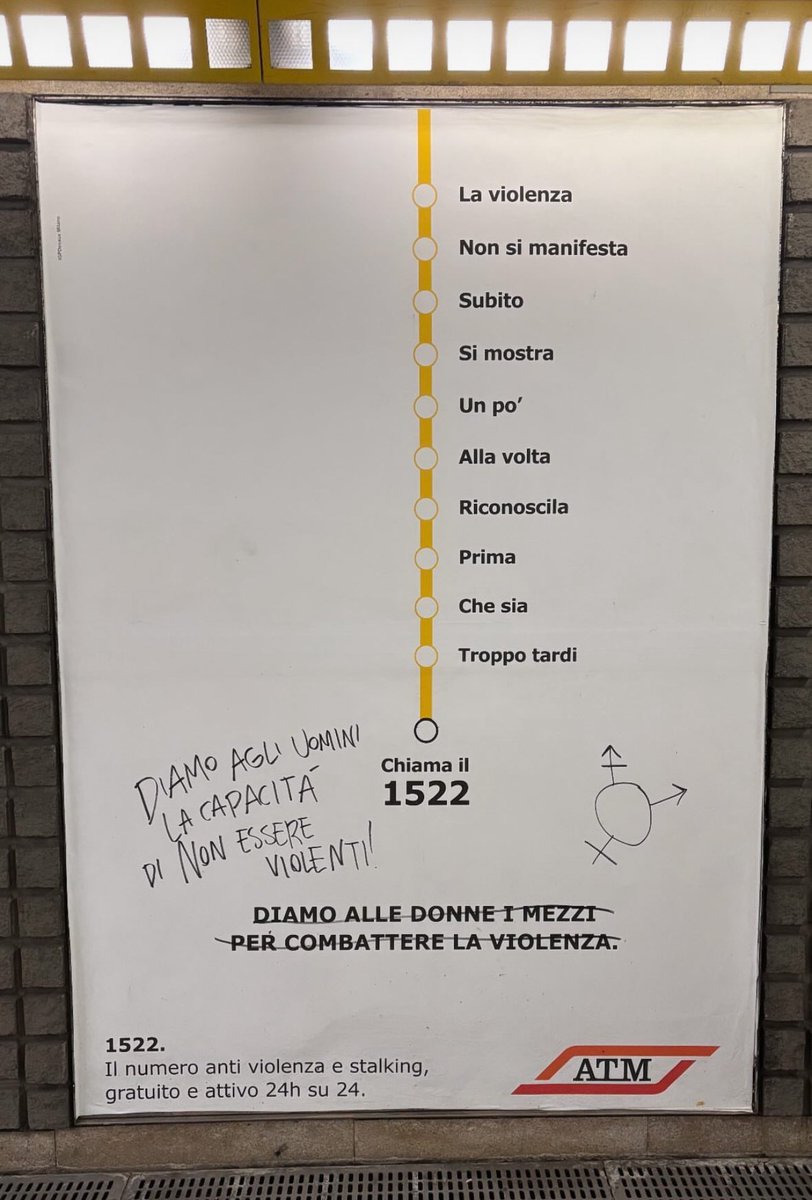 La violenza
Non si manifesta
Subito
Si mostra
Un po’
Alla volta
Riconoscila
Prima
Che sia
Troppo tardi
Chiama il
1522
DIAMO AGLI UOMINI
LA CAPACITÀ
DI NON ESSERE
VIOLENTI!
DIAMO ALLE DONNE I MEZZI
PER COMBATTERE LA VIOLENZA.
1522.
Il numero anti violenza e stalking,
gratuito e attivo 24h su 24.
ATM